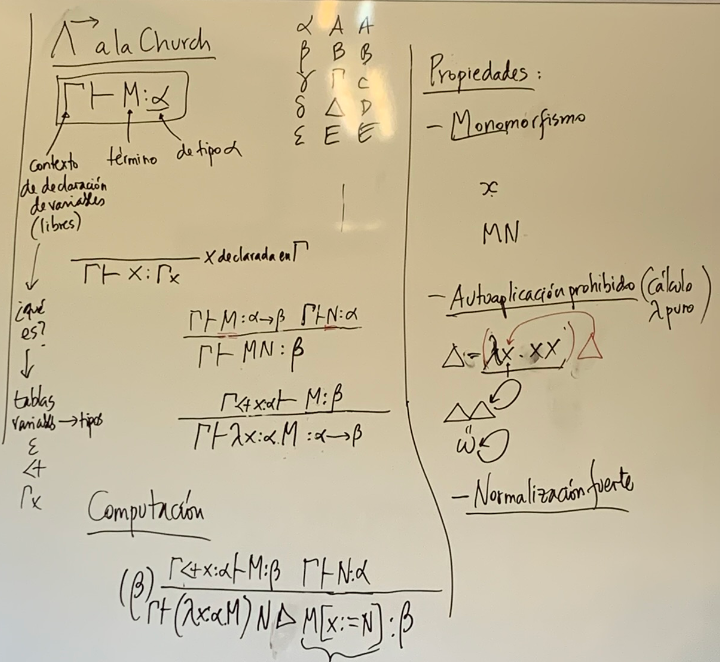 Λ→ a la Church
Γ ⊢ M : α
contexto de declaración de variables (libres)
término
de tipo α
¿qué es?
tablas
variables → tipos
ε
<+
Γx
α A A
β B B
γ Γ C
δ Δ D
ε E E
Γ ⊢ x : Γx
x declarada en Γ
Γ ⊢ M : α → β Γ ⊢ N : α
Γ ⊢ MN : β
Γ <+ x:α ⊢ M : β
Γ ⊢ λx:α.M : α → β
Computación
(β)
Γ <+ x:α ⊢ M : β Γ ⊢ N : α
Γ ⊢ (λx:α.M) N ▷ M[x:=N] : β
Propiedades :
- Monomorfismo
x
MN
- Autoaplicación prohibido (Cálculo λ puro)
Δ = (λx. xx) Δ
ΔΔ
ω
- Normalización fuerte